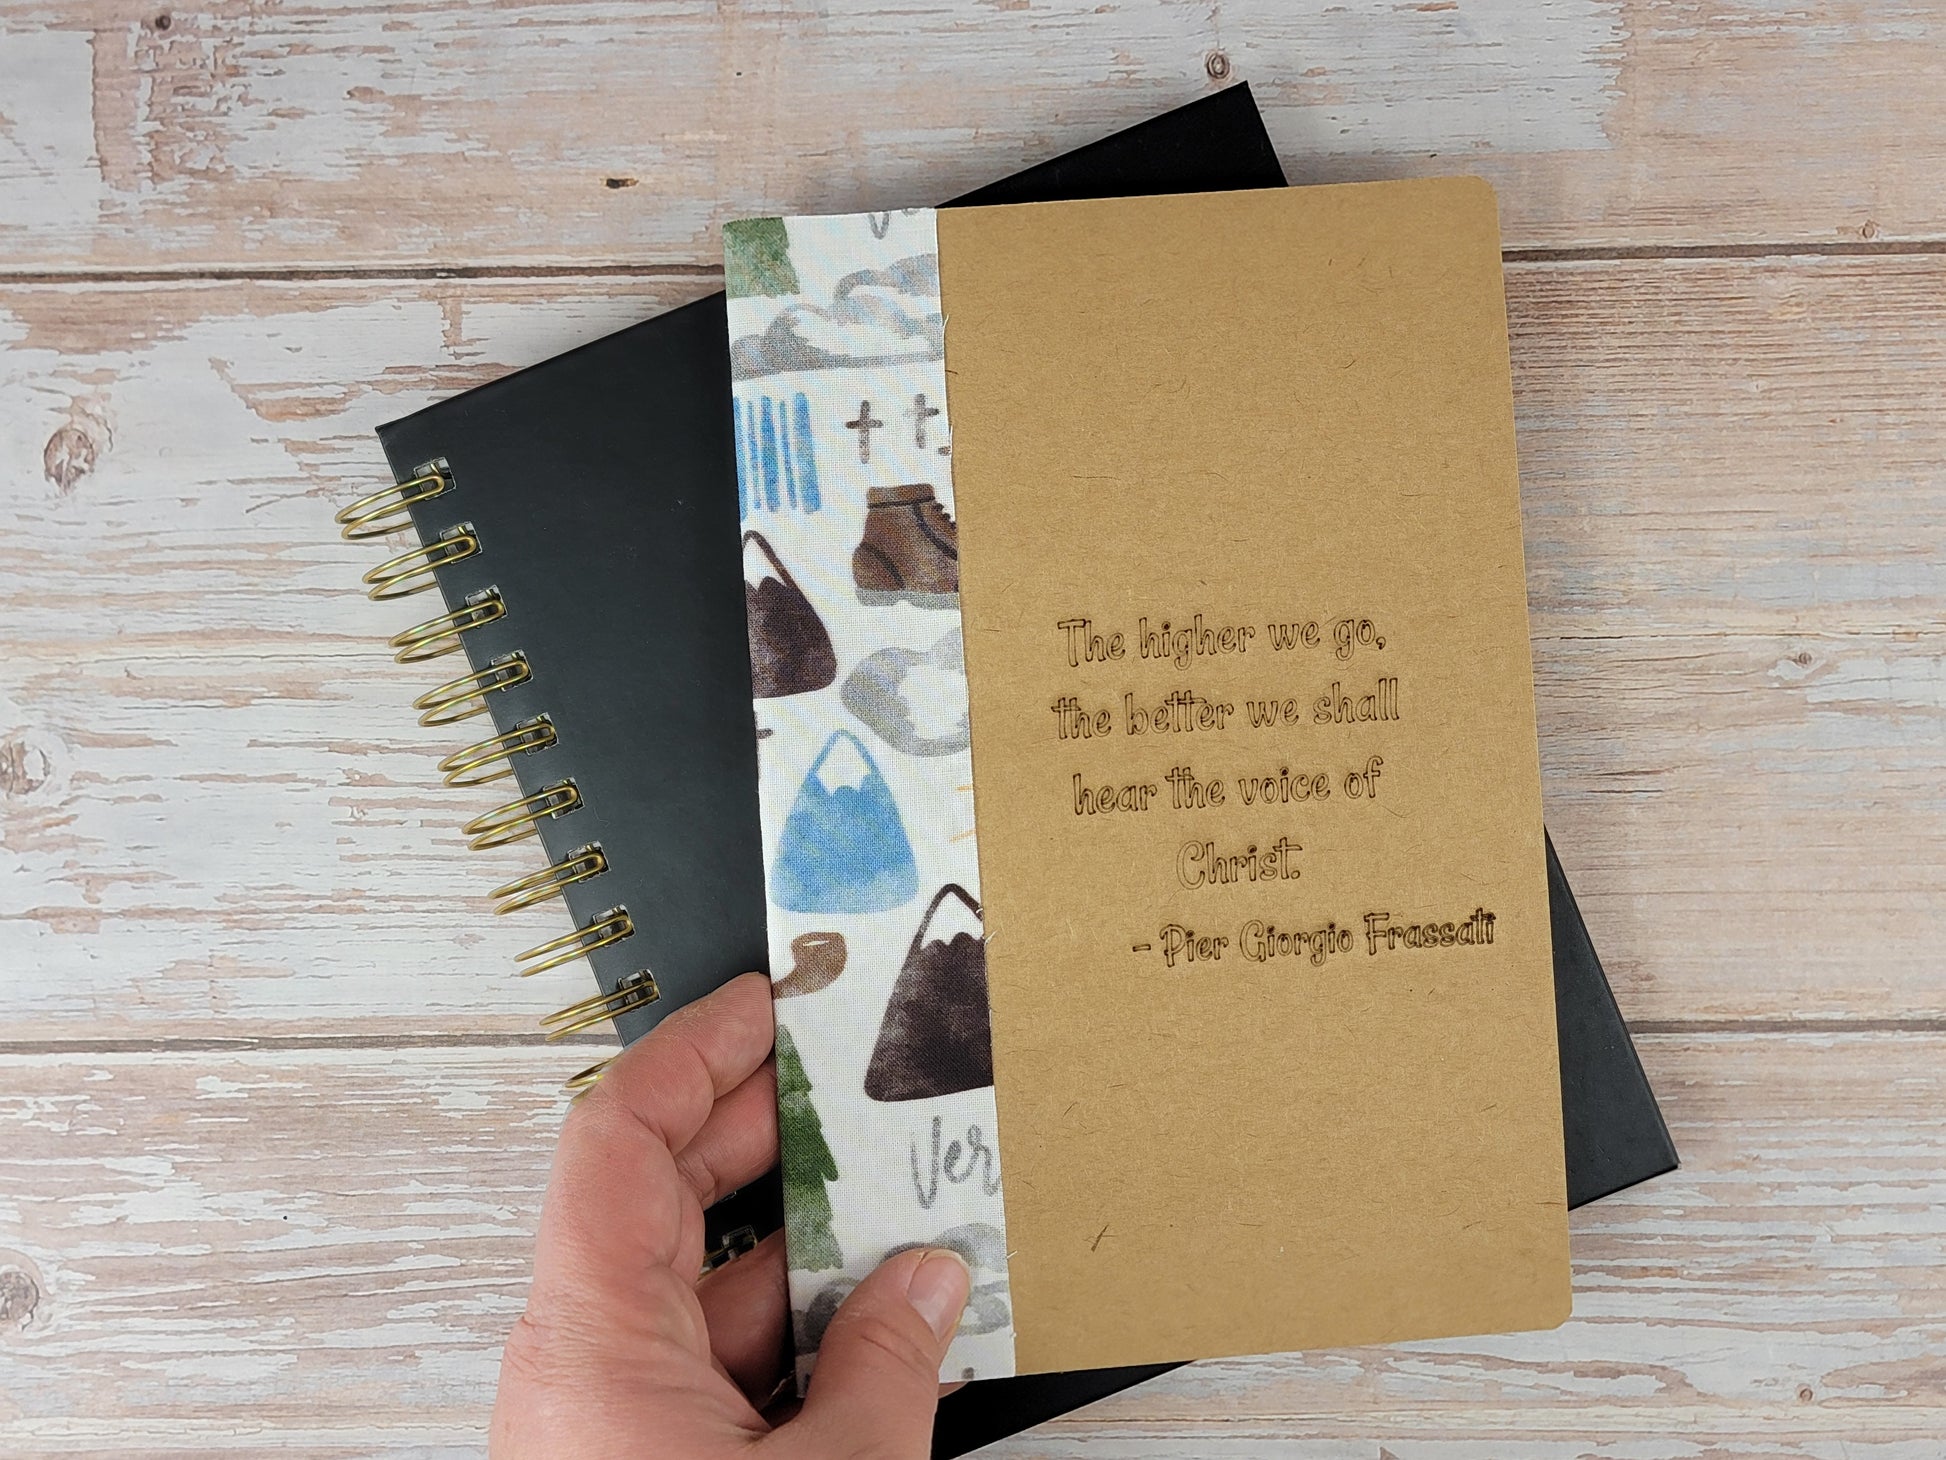 The higher we go,
the better we shall
hear the voice of
Christ.
- Pier Giorgio Frassati
Ver